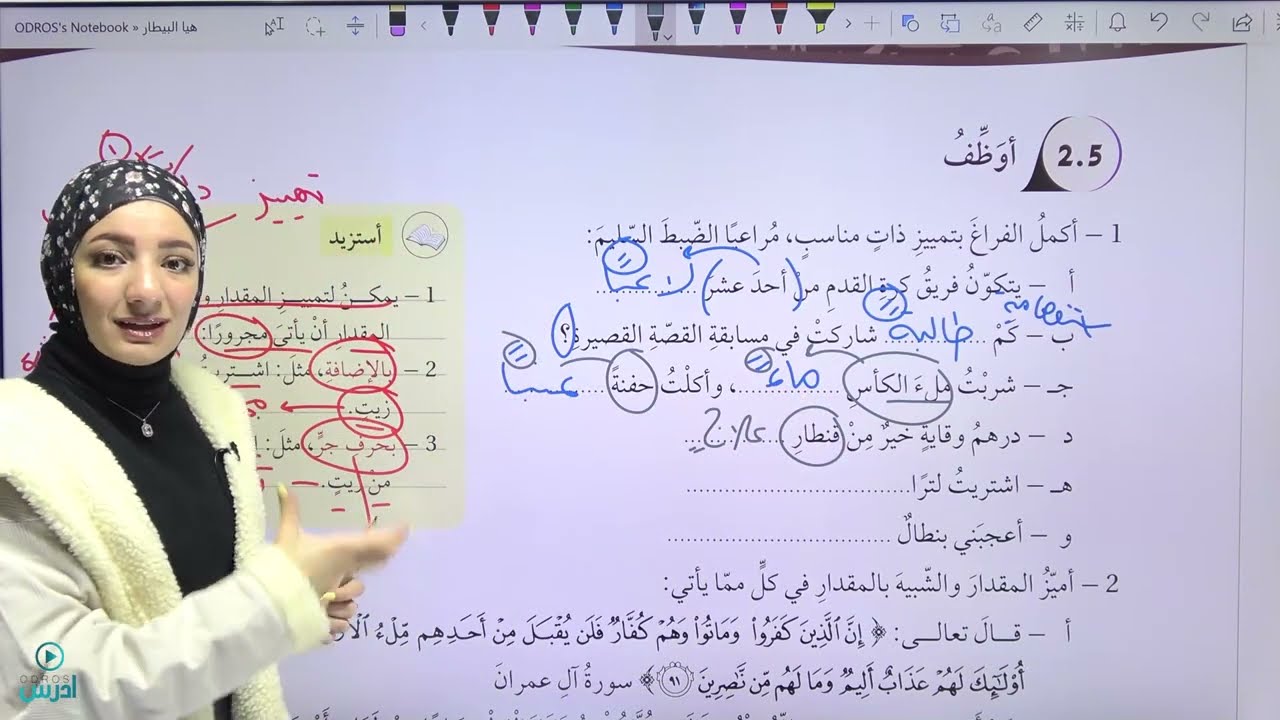 ODROS's Notebook » هيا البيطار
2.5 أوَظِّفُ
1 – أكملُ الفراغَ بتمييزِ ذاتٍ مناسبٍ، مُراعيًا الضّبطَ السّليمَ:
أ – يتكوّنُ فريقُ كرةِ القدمِ منْ (أحدَ عشرَ) لاعبًا
استفهامية
ب – كَمْ طالبةً شاركتْ في مسابقةِ القصّةِ القصيرةِ؟
جـ – شربْتُ ملءَ الكأسِ ماءً، وأكلْتُ حفنةً عنبًا
د – درهمُ وقايةٍ خيرٌ مِنْ قنطارِ علاجٍ
هـ – اشتريتُ لترًا
و – أعجبَني بنطالٌ
2 – أميّزُ المقدارَ والشّبيهَ بالمقدارِ في كلٍّ ممّا يأتي:
أ – قــالَ تعالــى: ﴿ إِنَّ ٱلَّذِينَ كَفَرُواْ وَمَاتُواْ وَهُمْ كُفَّارٌ فَلَن يُقْبَلَ مِنْ أَحَدِهِم مِّلْءُ
أُوْلَٰٓئِكَ لَهُمْ عَذَابٌ أَلِيمٌ وَمَا لَهُم مِّن نَّٰصِرِينَ ٩١ ﴾ سورةُ آلِ عمرانَ
تمييز
أستزيد
1 – يمكــنُ لتمييــزِ المقدارِ
المقدار أنْ يأتيَ مجرورًا:
2 – بالإضافةِ، مثلَ: اشــتريتُ
زيتٍ.
3 – بحرفِ جرٍّ، مثلَ:
من زيتٍ.
ODROS
ادرس